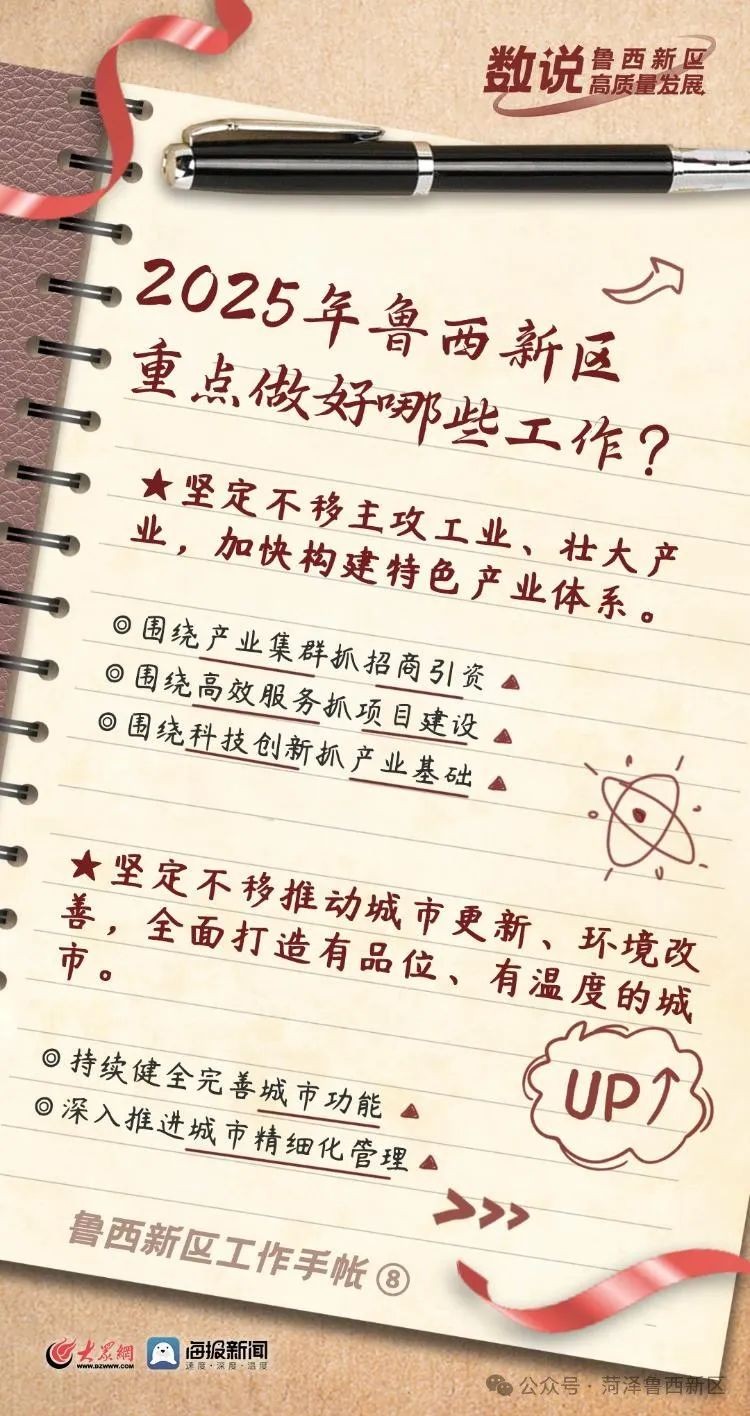 数说 鲁西新区
高质量发展
2025年鲁西新区
重点做好哪些工作?
★坚定不移主攻工业、壮大产
业，加快构建特色产业体系。
◎围绕产业集群抓招商引资▲
◎围绕高效服务抓项目建设▲
◎围绕科技创新抓产业基础▲
★坚定不移推动城市更新、环境改
善，全面打造有品位、有温度的城
市。
◎持续健全完善城市功能▲
◎深入推进城市精细化管理▲
UP↑
鲁西新区工作手帐⑧
大众網
WWW.DZWWW.COM
海报新闻
速度·深度·温度
公众号·菏泽鲁西新区